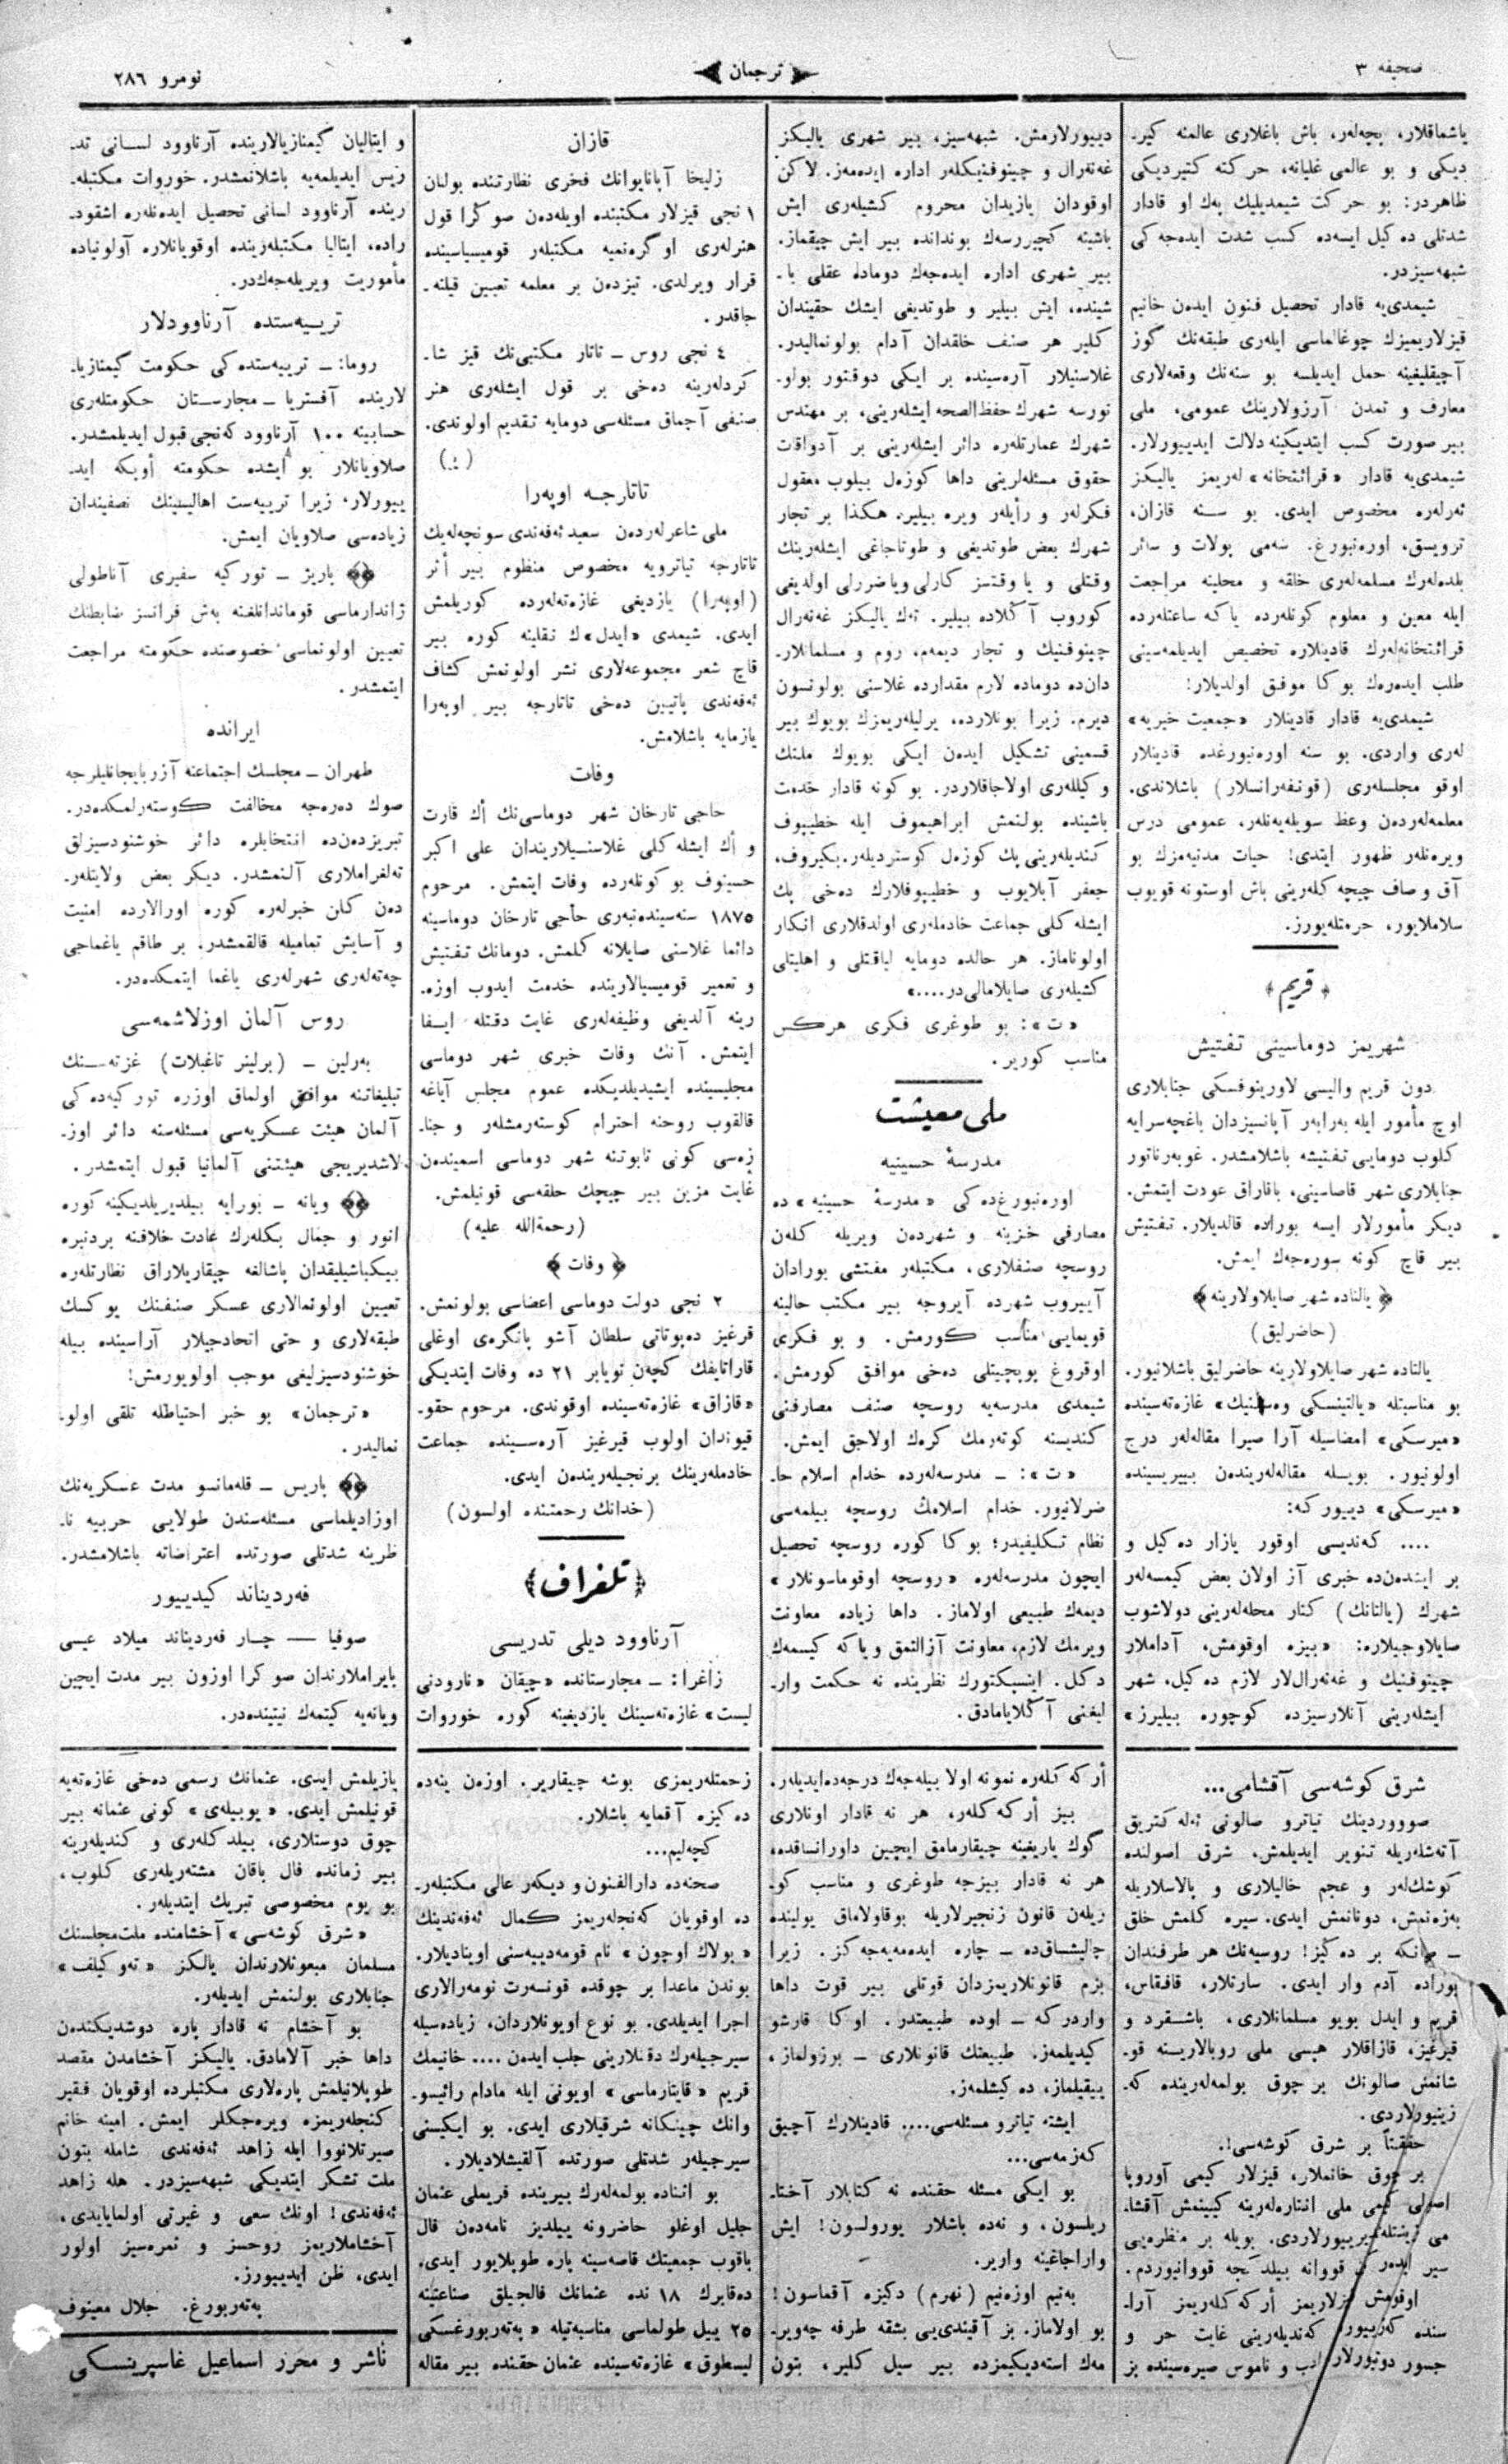 صحیفه ٣
ترجمان
نومرو ٢٨٦
یاشماقلار، پچه‌لەر، باش باغلاری عالمنه کیر-
دیکی و بو عالمی غلیانه، حرکته کتیردیکی
ظاهردر: بو حرکت شیمدیلیك پەك او قادار
شدتلی ده کیل ایسەده کسب شدت ایدەجەکی
شبهەسیزدر.
شیمدی‌یه قادار تحصیل فنون ایدەن خانیم
قیزلاریمیزك چوغالماسی ایلەری طبقەنك گوز
آچیقلیغینه حمل ایدیلسه بو سنەنك وقعەلاری
معارف و تمدن آرزولارینك عمومی، ملی
بیر صورت کسب ایتدیکینه دلالت ایدییورلار.
شیمدی‌یه قادار «قرائتخانه» لەریمز یالیکز
ئەرلەره مخصوص ایدی. بو سنه قازان،
ترویسق، اورەنبورغ، سەمی پولات و سائر
بلدەلەرك مسلمەلەری خلقه و محلینه مراجعت
ایله معین و معلوم کونلەرده یا که ساعتلەرده
قرائتخانەلەرك قادینلاره تخصیص ایدیلمەسینی
طلب ایدەرەك بو کا موفق اولدیلار!
شیمدی‌یه قادار قادینلار «جمعیت خیریه»
لەری واردی. بو سنه اورەنبورغده قادینلار
اوقو مجلسلەری (قونفەرانسلار) باشلاندی.
معلمەلەردن وعظ سویلەیەنلەر، عمومی درس
ویرەنلەر ظهور ایتدی! حیات مدنیەمزك بو
آق و صاف چیچه کلەرینی باش اوستونه قویوب
سلاملایور، حرمتلەیورز.
﴿ قریم ﴾
شهریمز دوماسینی تفتیش
دون قریم والیسی لاورینوفسکی جنابلاری
اوچ مأمور ایله بەرابەر آپانسیزدان باغچەسرایه
کلوب دومایی تفتیشه باشلامشدر. غوبەرناتور
جنابلاری شهر قاصاسینی، باقاراق عودت ایتمش.
دیکر مأمورلار ایسه بوراده قالدیلار. تفتیش
بیر قاچ کونه سورەجەك ایمش.
﴿ یالتاده شهر صایلاولارینه ﴾
(حاضرلیق)
یالتاده شهر صایلاولارینه حاضرلیق باشلانیور.
بو مناسبتله «یالتینسکی وەستنیك» غازەتەسینده
«میرسکی» امضاسیله آرا صیرا مقالەلەر درج
اولونیور. بویله مقالەلەریندەن بیریسینده
«میرسکی» دییور که:
.... کەندیسی اوقور یازار ده کیل و
بر ایشدەن‌ده خبری آز اولان بعض کیمسەلەر
شهرك (یالتانك) کنار محلەلەرینی دولاشوب
صایلاوجیلاره: «بیزه اوقومش، آداملار
چینوفنیك و غەنەرال‌لار لازم ده کیل، شهر
ایشلەرینی آنلارسیزده کوچوره بیلیرز»
دییورلارمش. شبهەسیز، بیر شهری یالیکز
غەنەرال و چینوفنیکلەر اداره ایدەمەز. لاکن
اوقودان یازیدان محروم کشیلەری ایش
باشینه کچیررسەك بوندانده بیر ایش چیقماز.
بیر شهری اداره ایدەجەك دوماده عقلی با-
شینده، ایش بیلیر و طوتدیغی ایشك حقیندان
کلیر هر صنف خلقدان آدام بولونمالیدر.
غلاسنیلار آرەسینده بر ایکی دوقتور بولو-
نورسه شهرك حفظ‌الصحه ایشلەرینی، بر مهندس
شهرك عمارتلەره دائر ایشلەرینی بر آدواقات
حقوق مسئلەلرینی داها کوزەل بیلوب معقول
فکرلەر و رأیلەر ویره بیلیر. هکذا بر تجار
شهرك بعض طوتدیغی و طوتاجاغی ایشلەرینك
وقتلی و یا وقتسز کارلی ویا ضررلی اولدیغی
کوروب آکلاده بیلیر. تەك یالیکز غەنەرال
چینوفنیك و تجار دیمەم، روم و مسلمانلار-
دان‌ده دوماده لازم مقدارده غلاسنی بولونسون
دیرم. زیرا بونلارده، یرلیلەریمزك بویوك بیر
قسمینی تشکیل ایدەن ایکی بویوك ملتك
وکیللەری اولاجاقلاردر. بو کونه قادار خدمت
باشینده بولنمش ابراهیموف ایله خطیبوف
کندیلەرینی پك کوزەل کوستردیلەر. بکیروف،
جعفر آبلایوب و خطیبوفلارك دەخی پك
ایشله کلی جماعت خادملەری اولدقلاری انکار
اولوناماز. هر حالده دومایه لیاقتلی و اهلیتلی
کشیلەری صایلامالی‌در....»
«ت»: بو طوغری فکری هرکس
مناسب کوریر.
ملی معیشت
مدرسهٔ حسینیه
اورەنبورغ‌دەکی «مدرسهٔ حسینیه» ده
مصارفی خزینه و شهردەن ویریله کلەن
روسچه صنفلاری، مکتبلەر مفتشی بورادان
آییروب شهرده آیروجه بیر مکتب حالینه
قویمایی مناسب کورمش. و بو فکری
اوقروغ پوپچیتلی دەخی موافق کورمش.
شیمدی مدرسەیه روسچه صنف مصارفنی
کندیسنه کوتەرمك کرەك اولاجق ایمش.
«ت»: ــ مدرسەلەرده خدام اسلام حا-
ضرلانیور. خدام اسلامك روسچه بیلمەسی
نظام تکلیفیدر؛ بو کا کوره روسچه تحصیل
ایچون مدرسەلەره «روسچه اوقوماسونلار»
دیمەك طبیعی اولاماز. داها زیاده معاونت
ویرمك لازم، معاونت آزالتمق و یا که کیسمەك
دکل. اینسپکتورك نظرینده نه حکمت وار-
لیغنی آکلایامادق.
قازان
زلیخا آپانایوانك فخری نظارتنده بولنان
١ نجی قیزلار مکتبنده اویلەدەن صوکرا قول
هنرلەری اوگرەنمیه مکتبلەر قومیسیاسینده
قرار ویرلدی. تیزدەن بر معلمه تعیین قیلنه-
جاقدر.
٤ نجی روس ــ تاتار مکتبی‌نك قیز شا-
کردلەرینه دەخی بر قول ایشلەری هنر
صنفی آچماق مسئلەسی دومایه تقدیم اولوندی.
تاتارجه اوپەرا
ملی شاعرلەردەن سعید ئەفەندی سونچەلەیك
تاتارجه تیاترویه مخصوص منظوم بیر أثر
(اوپەرا) یازدیغی غازەتەلەرده کوریلمش
ایدی. شیمدی «ایدل»ك نقلینه کوره بیر
قاچ شعر مجموعەلاری نشر اولونمش کشاف
ئەفەندی پاتیین دەخی تاتارجه بیر اوپەرا
یازمایه باشلامش.
وفات
حاجی تارخان شهر دوماسی‌نك أك قارت
و أك ایشله کلی غلاسنیلاریندان علی اکبر
حسینوف بو کونلەرده وفات ایتمش. مرحوم
١٨٧٥ سنەسیندەنبەری حاجی تارخان دوماسینه
دائما غلاسنی صایلانه کلمش. دومانك تفتیش
و تعمیر قومیسیالارینده خدمت ایدوب اوزە-
رینه آلدیغی وظیفەلەری غایت دقتله ایفا
ایتمش. آنك وفات خبری شهر دوماسی
مجلیسینده ایشیدیلدیکده عموم مجلس آیاغه
قالقوب روحنه احترام کوستەرمشلەر و جنا-
زەسی کونی تابوتنه شهر دوماسی اسمیندەن
غایت مزین بیر چیچك حلقەسی قونیلمش.
(رحمة‌الله علیه)
﴿ وفات ﴾
٢ نجی دولت دوماسی اعضاسی بولونمش.
قرغیز دەپوتاتی سلطان آشو بانگرەی اوغلی
قاراتایفك کچەن نویابر ٢١ ده وفات ایتدیکی
«قازاق» غازەتەسینده اوقوندی. مرحوم حقو-
قیوندان اولوب قیرغیز آرەسینده جماعت
خادملەرینك برنجیلەریندەن ایدی.
(خدانك رحمتنده اولسون)
﴿ تلغراف ﴾
آرناوود دیلی تدریسی
زاغرا: ــ مجارستانده «چیقان «نارودنی
لیست» غازەتەسینك یازدیغینه کوره خوروات
و ایتالیان گیمنازیالارینده آرناوود لسانی تد-
ریس ایدیلمەیه باشلانمشدر. خوروات مکتبلە-
رینده آرناوود لسانی تحصیل ایدەنلەره اشقود-
راده، ایتالیا مکتبلەرینده اوقویانلاره آولونیاده
مأموریت ویریلەجەك‌در.
تریەستده آرناوودلار
روما: ــ تریەستدەکی حکومت گیمنازیا-
لارینده آفستریا ــ مجارستان حکومتلەری
حسابینه ١٠٠ آرناوود کەنجی قبول ایدیلمشدر.
صلاویانلار بو ایشده حکومته أویکه اید-
ییورلار، زیرا تریەست اهالیسینك نصفیندان
زیادەسی صلاویان ایمش.
پاریژ ــ تورکیه سفیری آناطولی
ژاندارماسی قوماندانلغنه بەش فرانسز ضابطنك
تعیین اولونماسی خصوصنده حکومته مراجعت
ایتمشدر.
ایرانده
طهران ــ مجلسك اجتماعنه آزربایجانلیلرجه
صوك دەرەجه مخالفت کوستەرلمکدەدر.
تبریزدەن‌ده انتخابلره دائر خوشنودسیزلق
تەلغراملاری آلنمشدر. دیکر بعض ولایتلەر-
دەن کلن خبرلەره کوره اورالارده امنیت
و آسایش تمامیله قالقمشدر. بر طاقم یاغماجی
چەتەلەری شهرلەری یاغما ایتمکدەدر.
روس آلمان اوزلاشمەسی
بەرلین ــ (برلینر تاغبلات) غزتەسنك
تبلیغاتنه موافق اولماق اوزره تورکیەدەکی
آلمان هیئت عسکریەسی مسئلەسنه دائر اوز-
لاشدیریجی هیئتنی آلمانیا قبول ایتمشدر.
ویانه ــ بورایه بیلدیریلدیکینه کوره
انور و جمال بکلەرك عادت خلافنه بردنبره
بیکباشیلیقدان پاشالغه چیقاریلاراق نظارتلەره
تعیین اولونمالاری عسکر صنفنك یوکسك
طبقەلاری و حتی اتحادجیلار آراسینده بیله
خوشنودسیزلیغی موجب اولویورمش!
«ترجمان» بو خبر احتیاطله تلقی اولو-
نمالیدر.
پاریس ــ قلەمانسو مدت عسکریەنك
اوزادیلماسی مسئلەسندن طولایی حربیه نا-
ظرینه شدتلی صورتده اعتراضاته باشلامشدر.
فەردیناند کیدییور
صوفیا — چار فەردیناند میلاد عیسی
بایراملارندان صوکرا اوزون بیر مدت ایچین
ویانەیه کیتمك نیتیندەدر.
شرق کوشەسی آقشامی...
صوووردینك تیاترو صالونی ئەلەکتریق
آتەشلەریله تنویر ایدیلمش، شرق اصولنده
کوشك‌لەر و عجم خالیلاری و پالاسلاریله
بەزەنمش، دونانمش ایدی. سیره کلمش خلق
ــ صانکه بر دەکیز! روسیەنك هر طرفندان
بوراده آدم وار ایدی. سارتلار، قافقاس،
قریم و ایدل بویو مسلمانلاری، باشقرد و
قیرغیز، قازاقلار هپسی ملی روبالارینه قو-
شانمش صالونك بر چوق بولمەلەرینده کە-
زینیورلاردی.
حقیقتاً بر شرق کوشەسی!.
بر چوق خانملار، قیزلار کیمی آوروپا
اصولی کیمی ملی انتارەلەرینه کیینمش آقشا-
سیر ایدەر قووانه بیلدکجه قووانیوردم.
اوقومش قیزلاریمز أرکەکلەریمز آرا-
سنده کەزییور، کەندیلەرینی غایت حر و
جسور دوتیورلار، ادب و ناموس صیرەسینده بز
أرکەکلەره نمونه اولا بیلەجەك درجەده‌ایدیلەر.
بیز أرکەکلەر، هر نه قادار اونلاری
گوك یاریغینه چیقارمامق ایچین داورانساقده،
هر نه قادار بیزجه طوغری و مناسب کو-
ریلەن قانون زنجیرلاریله بوقاولاماق یولینده
چالیشساق‌ده ــ چاره ایدەمەیەجەکز. زیرا
بزم قانونلاریمزدان قوتلی بیر قوت داها
واردرکه ــ اوده طبیعتدر. اوکا قارشو
کیدیلمەز. طبیعتك قانونلاری ــ برزولماز،
ییقیلماز، دەکیشلمەز.
ایشته تیاترو مسئلەسی.... قادینلارك آچیق
کەزمەسی...
بو ایکی مسئله حقنده نه کتابلار آختا-
ریلسون، و نەده باشلار یورولسون! ایش
واراجاغینه واریر.
بەنیم اوزەنیم (نهرم) دکیزه آقماسون!
بو اولاماز. بز آقیندی‌یی بشقه طرفه چەویر-
مەك استەدیکیمزده بیر سیل کلیر، بتون
زحمتلەریمزی بوشه چیقاریر. اوزەن ینەده
دەکیزه آقمایه باشلار.
کچەلیم...
صحنەده دارالفنون و دیکەر عالی مکتبلەر-
ده اوقویان کەنجلەریمز کمال ئەفەندینك
«بولاك اوچون» نام قومەدییەسنی اوینادیلار.
بوندن ماعدا بر چوقده قونسەرت نومەرالاری
اجرا ایدیلدی. بو نوع اویونلاردان، زیادەسیله
سیرجیلەرك دقتلارینی جلب ایدەن .... خانیمك
قریم «قایتارماسی» اویونی ایله مادام رائیسو-
وانك چینگانه شرقیلاری ایدی. بو ایکیسنی
سیرجیلەر شدتلی صورتده آلقیشلادیلار.
بو اثناده بولمەلەرك بیرینده قریملی عثمان
جلیل اوغلو حاضرونه ییلدیز نامەدەن فال
باقوب جمعیتك قاصەسینه پاره طوپلایور ایدی.
دەقابرك ١٨ نده عثمانك فالجیلق صناعتینه
٢٥ ییل طولماسی مناسبەتیله «پەتەربورغسکی
لیسطوق» غازەتەسینده عثمان حقنده بیر مقاله
یازیلمش ایدی. عثمانك رسمی دەخی غازەتەیه
قونیلمش ایدی. «یوبیلەی» کونی عثمانه بیر
چوق دوستلاری، بیلدکلەری و کندیلەرینه
بیر زمانده فال باقان مشتەریلەری کلوب،
بو یوم مخصوصی تبریك ایتدیلەر.
«شرق کوشەسی» آخشامنده ملت‌مجلسنك
مسلمان مبعوثلارندان یالکز «تەوکیلف»
جنابلاری بولنمش ایدیلەر.
بو آخشام نه قادار پاره دوشدیکندەن
داها خبر آلامادق. یالیکز آخشامدن مقصد
طوپلانیلمش پارەلاری مکتبلرده اوقویان فقیر
کنجلەریمزه ویرەجکلر ایمش. امینه خانم
صیرتلانووا ایله زاهد ئەفەندی شامله بتون
ملت تشکر ایتدیکی شبهەسیزدر. هله زاهد
ئەفەندی! اونك سعی و غیرتی اولمایایدی،
آخشاملاریمز روحسز و ثمرەسیز اولور
ایدی، ظن ایدییورز.
پەتەربورغ. جلال معینوف
ناشر و محرر اسماعیل غاسپرینسکی